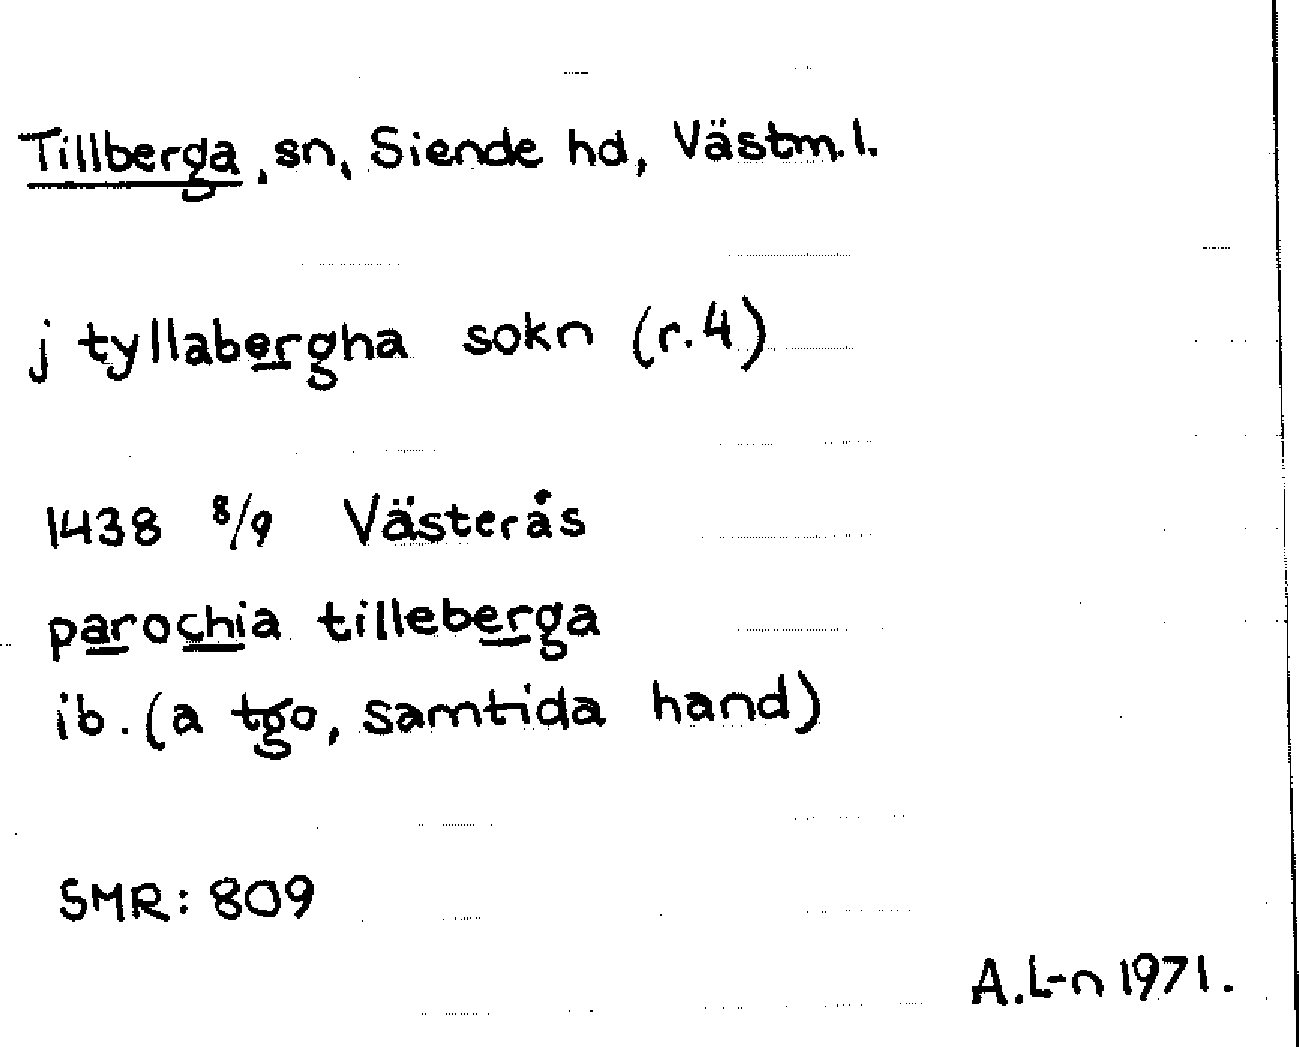 Tillberga, sn, Siende hd, Västm. l.
j tyllabergha sokn (r. 4)
1438 8/9 Västerås
parochia tilleberga
ib. (a tgo, samtida hand)
SMR: 809
A. L-n 1971.